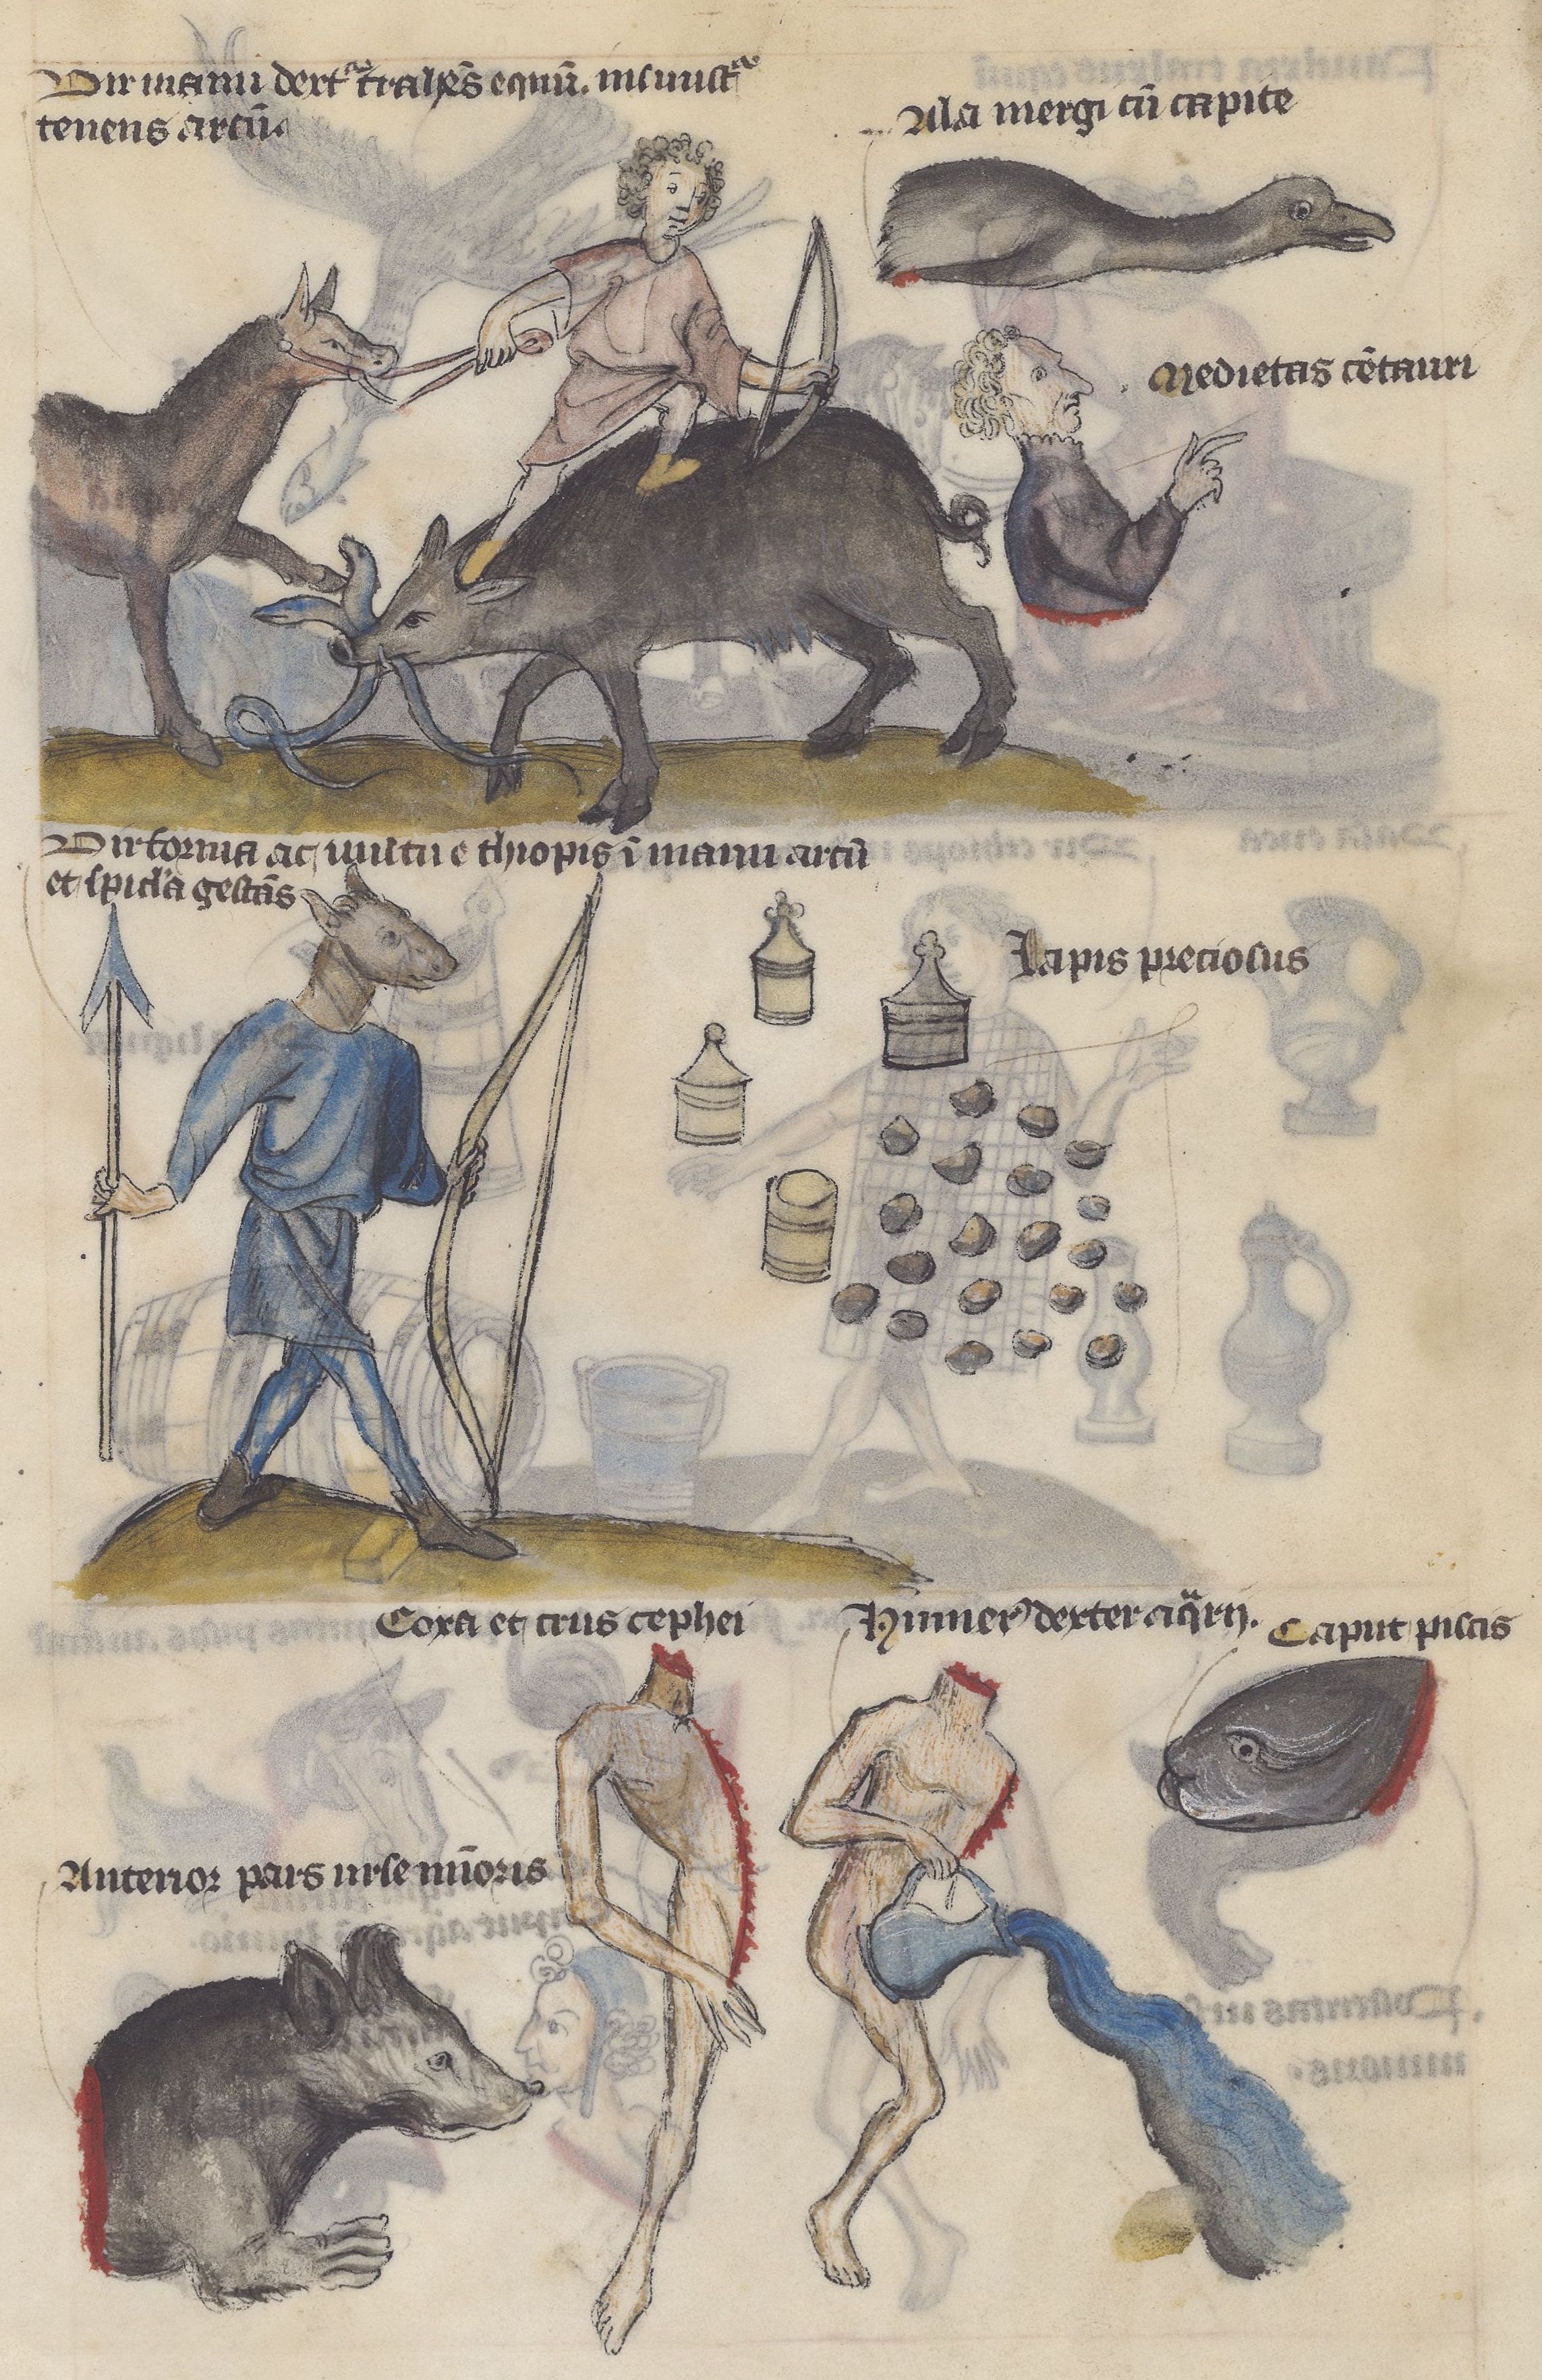 Vir manu dext^a trahēs equū. in sinist^a
tenens arcū.
Ala mergi cū capite
Medietas cētauri
Vir forma ac uultu ethiopis ī manu arcū
et spicl'a gestās
Lapis preciosus
Coxa et crus cephei
Humer⁹ dexter aq̄rij.
Caput piscis
Anterior pars urse mīoris